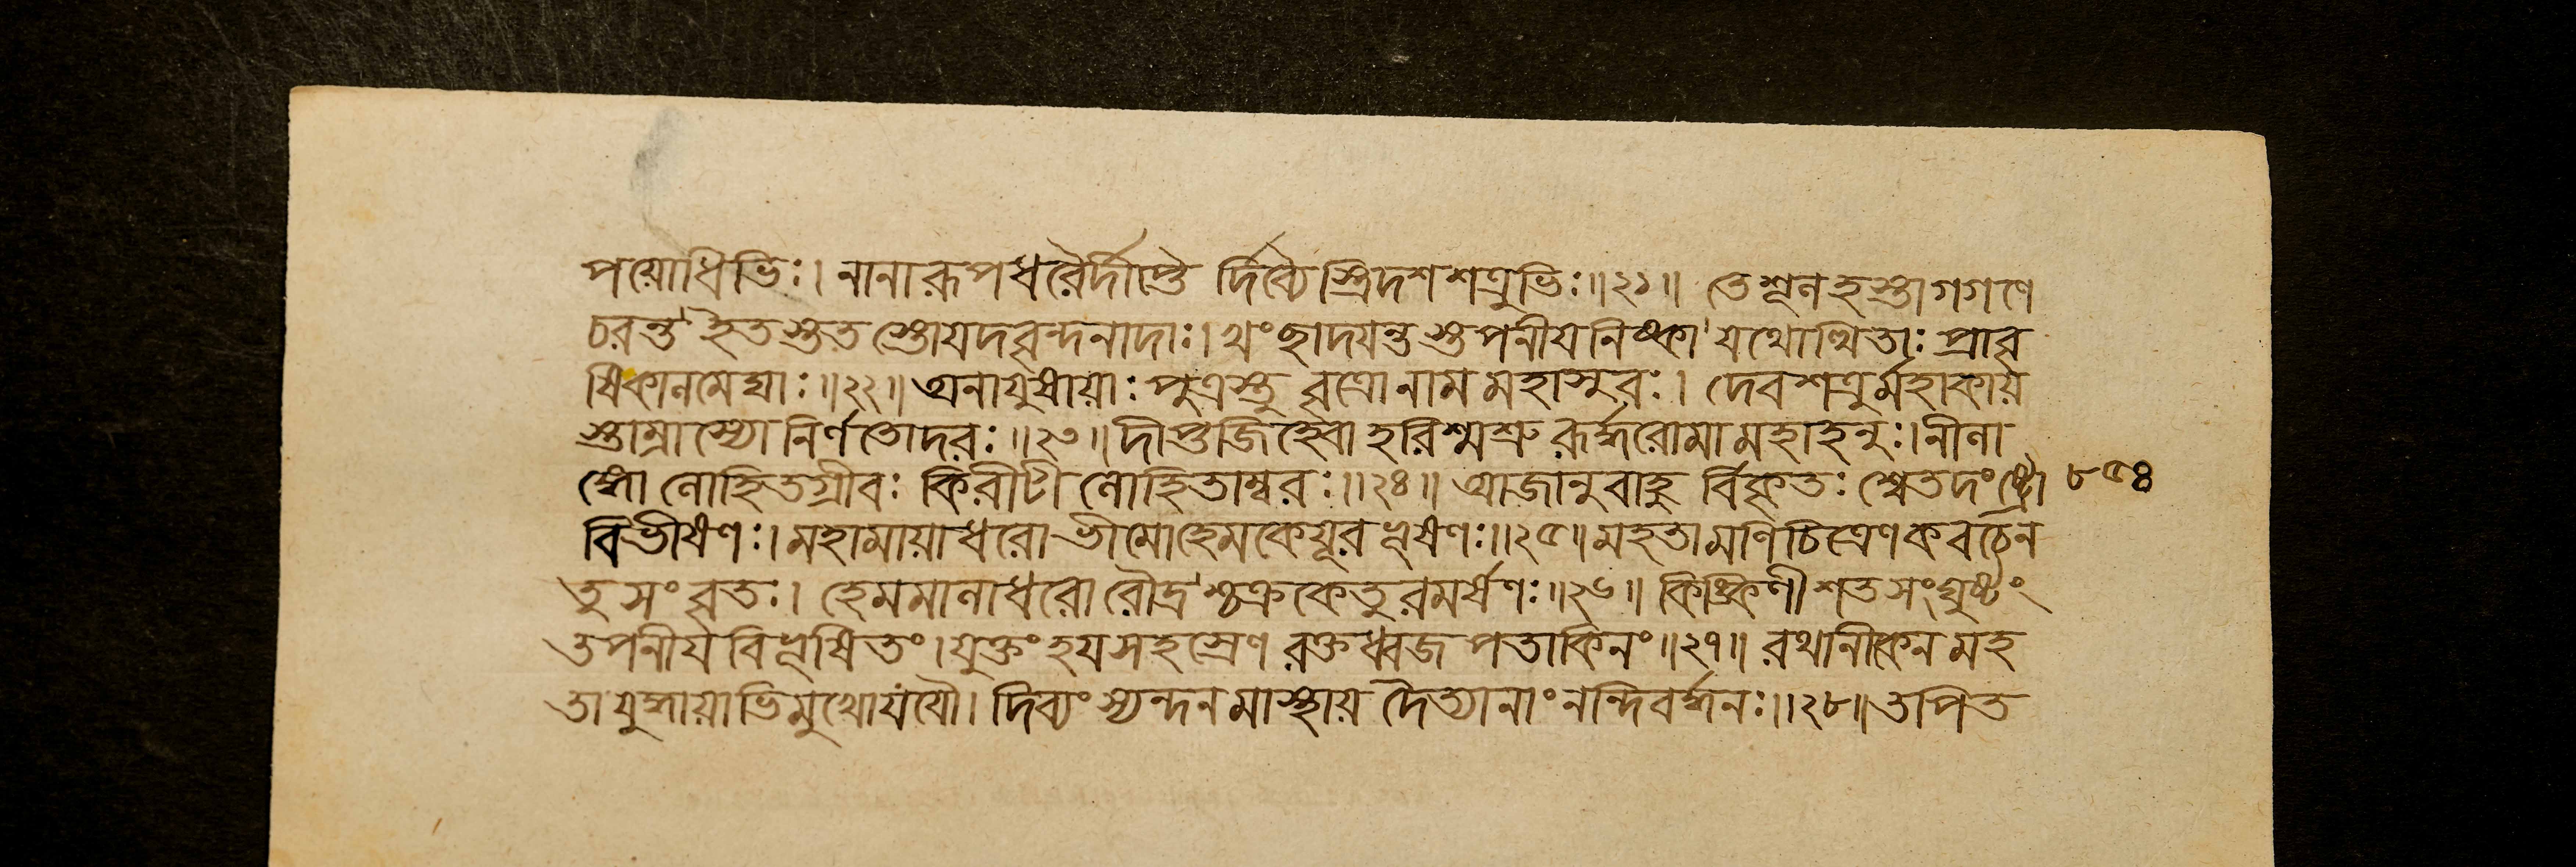 পয়োধিভিঃ। নানারূপধরৈর্দীপ্তৈ র্দিব্যৈস্ত্রিদশশত্রুভিঃ॥২১॥ তে শূলহস্তা গগণে
চরন্ত ইতস্তত স্তোযদবৃন্দনাদাঃ। খং ছাদযন্ত স্তপনীযনিষ্কা যথোত্থিতাঃ প্রাবৃ
ষিকালমেঘাঃ॥২২॥ অনাযুষায়াঃ পুত্রস্তু বৃত্রো নাম মহাসুরঃ। দেবশত্রুর্মহাকায়
স্তাম্রাস্যো নির্ণতোদরঃ॥২৩॥ দীপ্তজিহ্বো হরিশ্মশ্রু রূর্দ্ধরোমা মহাহনুঃ। নীলা
ঙ্গো লোহিতগ্রীবঃ কিরীটী লোহিতাম্বরঃ॥২৪॥ আজানুবাহু র্বিকৃতঃ শ্বেতদংষ্ট্রো ৮৫৪
বিভীষণঃ। মহামায়াধরো ভীমো হেমকেযূরভূষণঃ॥২৫॥ মহতা মণিচিত্রেণ কবচেন
তু সংবৃতঃ। হেমমালাধরো রৌদ্র শ্চক্রকেতুরমর্ষণঃ॥২৬॥ কিঙ্কিণীশতসংঘুষ্টং
তপনীয বিভূষিতং। যুক্তং হযসহস্রেণ রক্তধ্বজপতাকিনং॥২৭॥ রথানীকেন মহ
তা যুদ্ধায়াভিমুখো যযৌ। দিব্যং স্যন্দনমাস্থায় দৈত্যানাং নন্দিবর্দ্ধনঃ॥২৮॥ তপিত